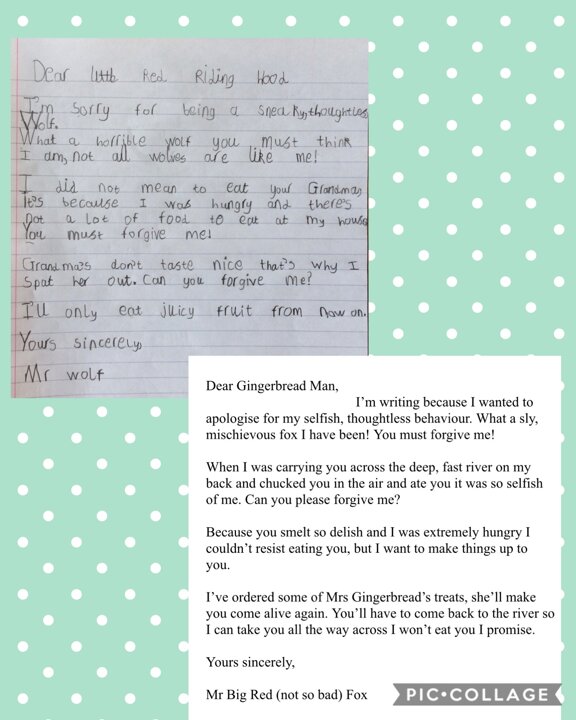 Dear little Red Riding Hood
I'm sorry for being a sneaky, thoughtless
Wolf.
What a horrible wolf you must think
I am, not all wolves are like me!
I did not mean to eat your Grandma,
It's because I was hungry and there's
not a lot of food to eat at my house
You must forgive me!
Grandma's don't taste nice that's why I
spat her out. Can you forgive me?
I'll only eat juicy fruit from now on.
Yours sincerely,
Mr wolf
Dear Gingerbread Man,
I'm writing because I wanted to
apologise for my selfish, thoughtless behaviour. What a sly,
mischievous fox I have been! You must forgive me!
When I was carrying you across the deep, fast river on my
back and chucked you in the air and ate you it was so selfish
of me. Can you please forgive me?
Because you smelt so delish and I was extremely hungry I
couldn't resist eating you, but I want to make things up to
you.
I've ordered some of Mrs Gingerbread's treats, she'll make
you come alive again. You'll have to come back to the river so
I can take you all the way across I won't eat you I promise.
Yours sincerely,
Mr Big Red (not so bad) Fox
PIC•COLLAGE